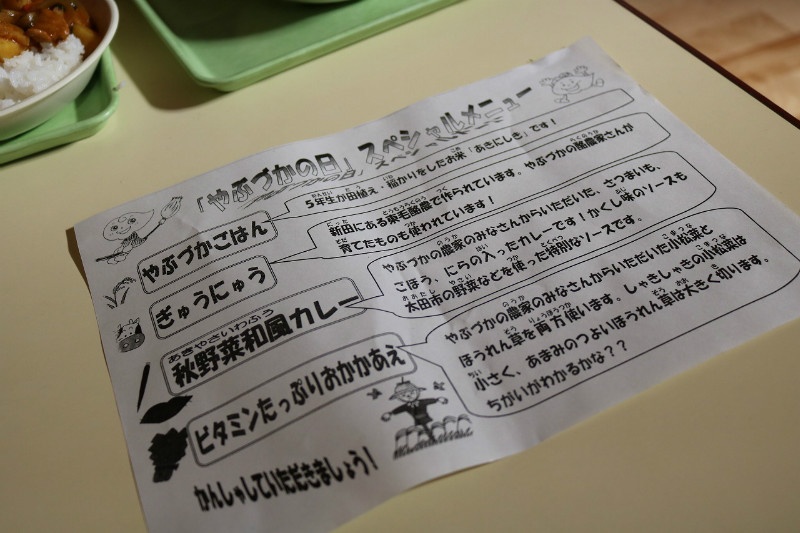 「やぶづかの日」スペシャルメニュー
やぶづかごはん
5年生が田植え・稲かりをしたお米「あさにしき」です！
ぎゅうにゅう
新田にある東毛酪農で作られています。やぶづかの酪農家さんが
育てたものも使われています！
秋野菜和風カレー
やぶづかの農家のみなさんからいただいた、さつまいも、
ごぼう、にらの入ったカレーです！かくし味のソースも
太田市の野菜などを使った特別なソースです。
ビタミンたっぷりおかかあえ
やぶづかの農家のみなさんからいただいた小松菜と
ほうれん草を両方使います。しゃきしゃきの小松菜は
小さく、あまみのつよいほうれん草は大きく切ります。
ちがいがわかるかな？？
かんしゃしていただきましょう！